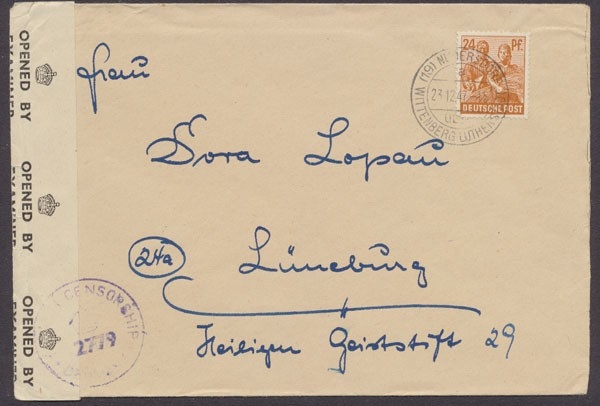 OPENED BY
EXAMINER
OPENED BY
EXAMINER
OPENED BY
EXAMINER
24 Pf.
DEUTSCHE POST
(19)
23.12.47
WITTENBERG
Frau
Dora Lopau
24a Lüneburg
Heiligen Geiststift 29
CENSORSHIP
2779